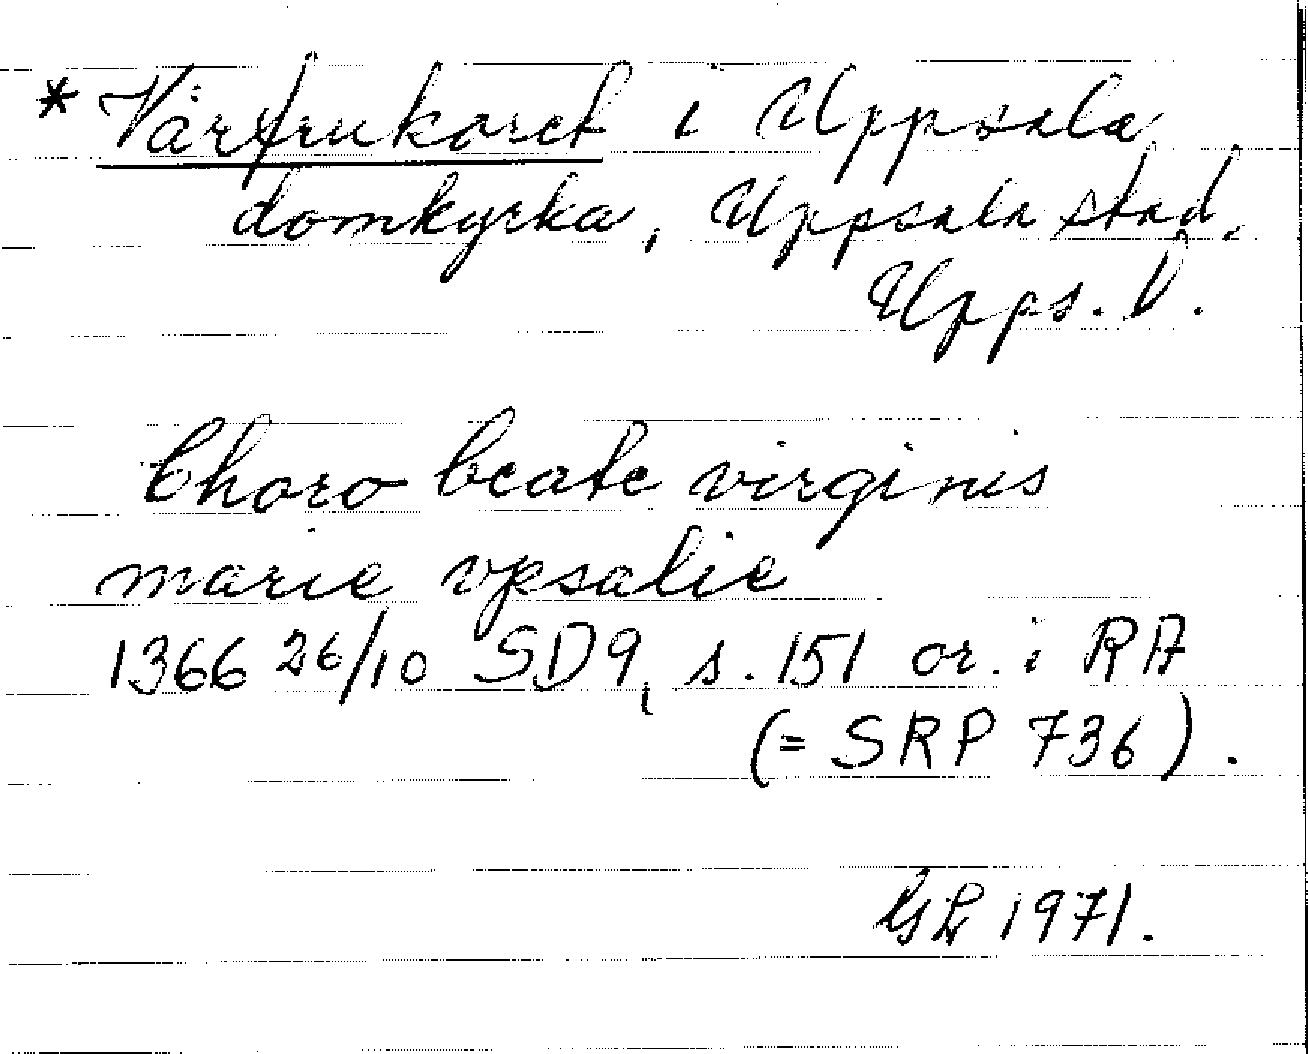 * Vårfrukoret i Uppsala
domkyrka, Uppsala stad,
Upps. l.
Choro beate virginis
marie vpsalie
1366 26/10 SD9, s. 151 or. i RA
(= SRP 736).
GL 1971.